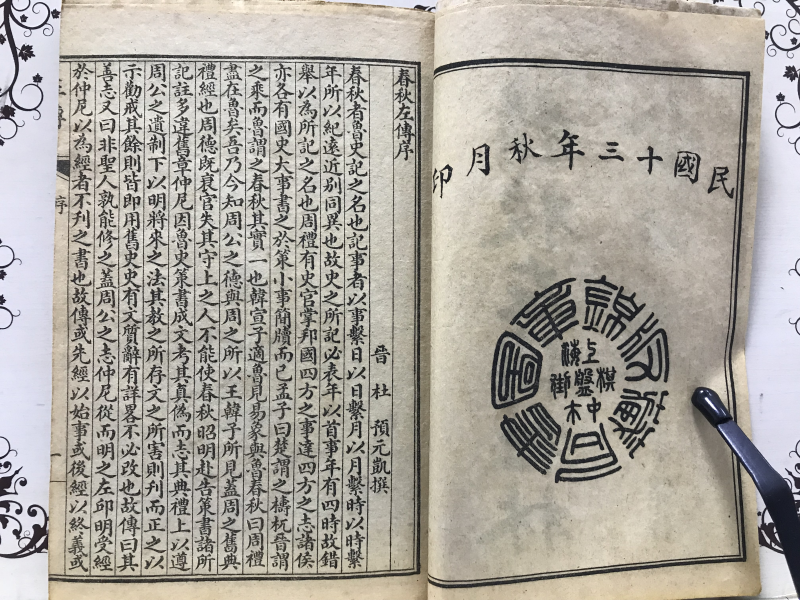 民國十三年秋月印
錦章圖書局藏版
上海棋盤街中市
春秋左傳序
晉 杜 預元凱撰
春秋者魯史記之名也記事者以事繫日以日繫月以月繫時以時繫
年所以紀遠近別同異也故史之所記必表年以首事年有四時故錯
舉以為所記之名也周禮有史官掌邦國四方之事達四方之志諸侯
亦各有國史大事書之於策小事簡牘而已孟子曰楚謂之檮杌晉謂
之乘而魯謂之春秋其實一也韓宣子適魯見易象與魯春秋曰周禮
盡在魯矣吾乃今知周公之德與周之所以王韓子所見蓋周之舊典
禮經也周德既衰官失其守上之人不能使春秋昭明赴告策書諸所
記註多違舊章仲尼因魯史策書成文考其真偽而志其典禮上以遵
周公之遺制下以明將來之法其教之所存文之所害則刊而正之以
示勸戒其餘則皆即用舊史史有文質辭有詳畧不必改也故傳曰其
善志又曰非聖人孰能修之蓋周公之志仲尼從而明之左邱明受經
於仲尼以為經者不刊之書也故傳或先經以始事或後經以終義或
序
一